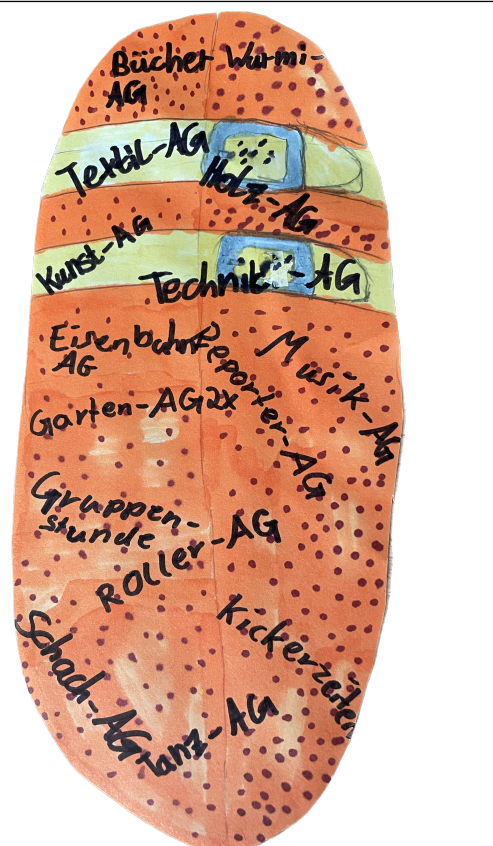 Bücher Wurmi-
AG
Textil-AG
Holz-AG
Kunst-AG
Technik-AG
Eisenbahn
AG
Reporter-AG
Musik-AG
Garten-AG 2x
Gruppen-
stunde
Roller-AG
Kickerzeiten
Schach-AG
Tanz-AG